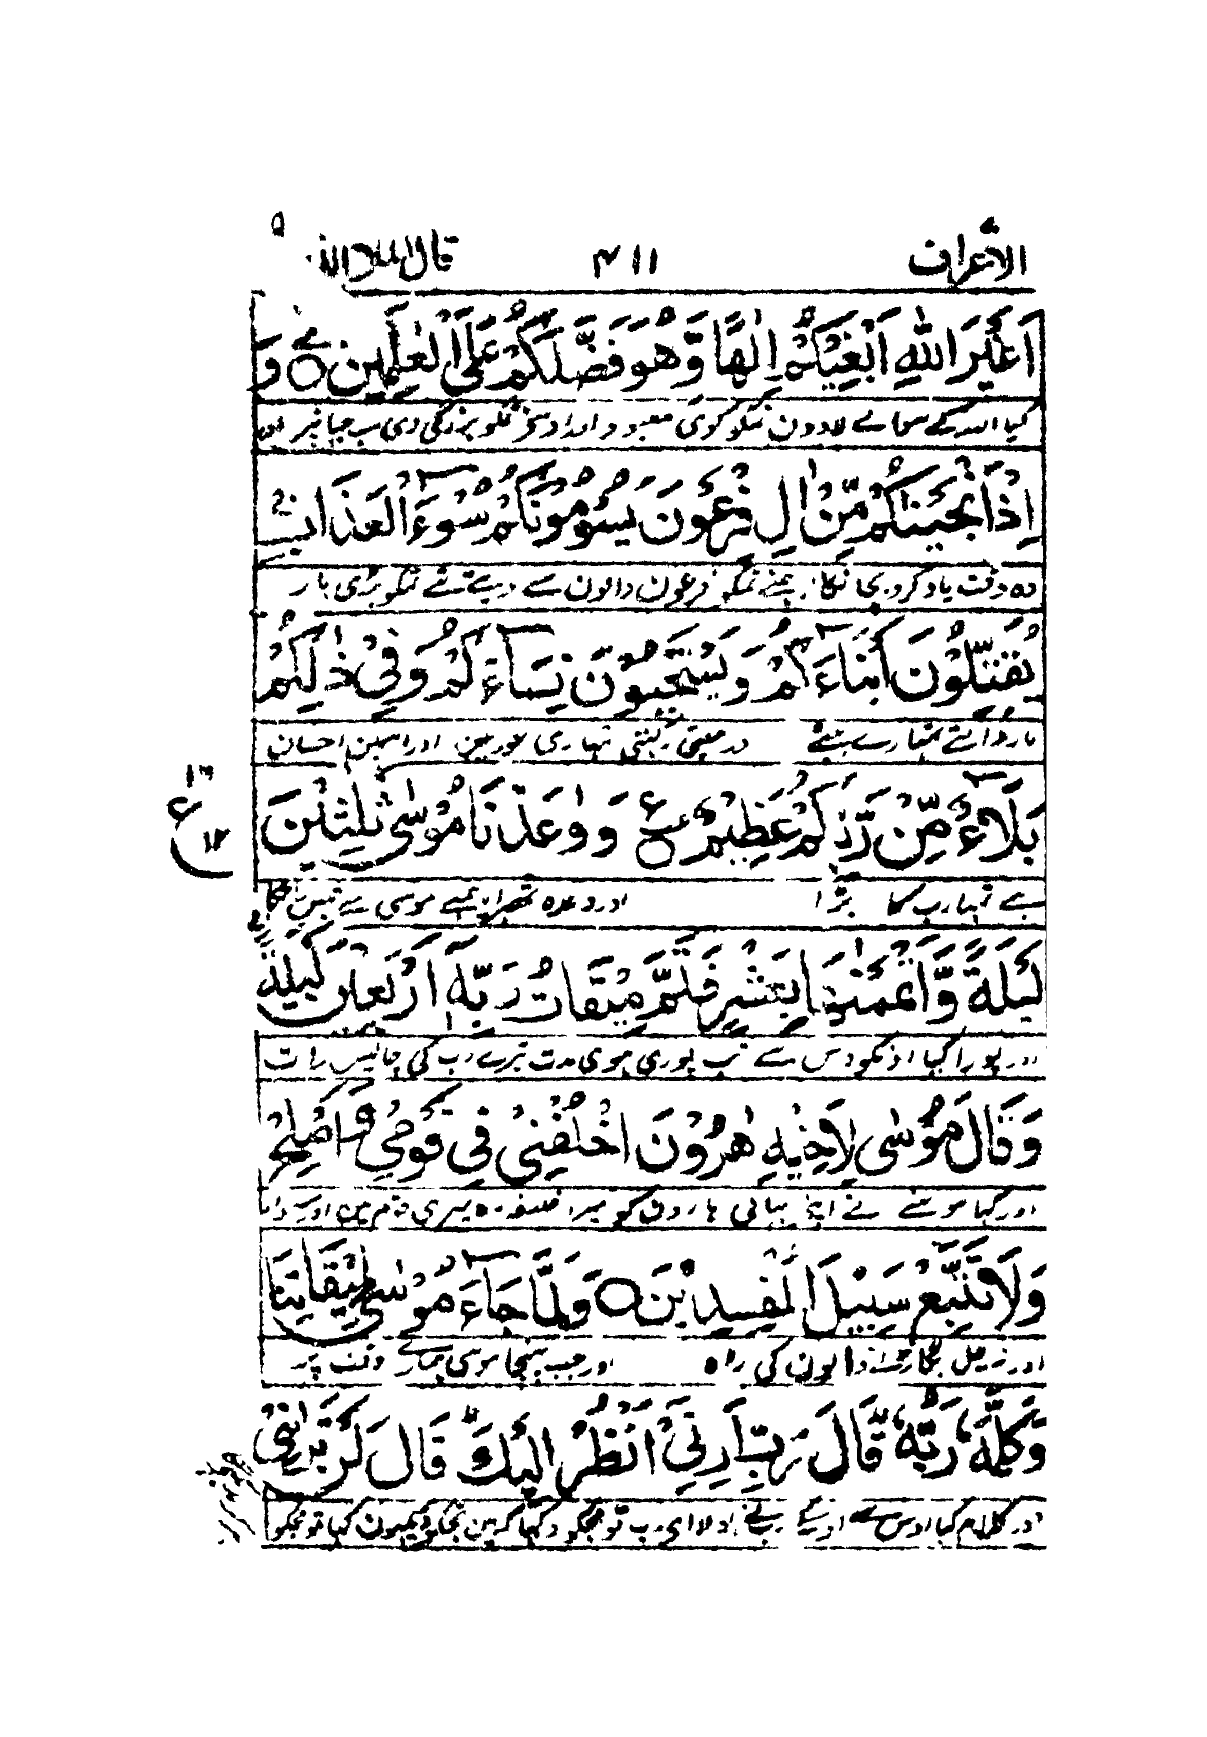 الاعراف ٣١١ قال الملا ٩
اَغَیْرَ اللّٰهِ اَبْغِیْكُمْ اِلٰهًا وَّهُوَ فَضَّلَكُمْ عَلَی الْعٰلَمِیْنَ ○ وَ
کیا اللہ کے سواے لادون تمکو کوئی معبود اور اوسنے تمکو بزرگی دی سب جہانپر
اِذْ اَنْجَیْنٰكُمْ مِّنْ اٰلِ فِرْعَوْنَ یَسُوْمُوْنَكُمْ سُوْٓءَ الْعَذَابِ
وہ وقت یاد کرو جب نکالا ہمنے تمکو فرعون والون سے دیتے تھے تمکو بری مار
یُقَتِّلُوْنَ اَبْنَآءَكُمْ وَیَسْتَحْیُوْنَ نِسَآءَكُمْ وَفِیْ ذٰلِكُمْ
مار ڈالتے تمہارے بیٹے اور جیتی رکہتی تہاری عورتین اور اسمین احسان
بَلَآءٌ مِّنْ رَّبِّكُمْ عَظِیْمٌ ○ ع وَوٰعَدْنَا مُوْسٰی ثَلٰثِیْنَ
ہے تمہارے رب کا بڑا اور وعدہ ٹھرایا ہمنے موسی سے تیس
١٦
ع
١٢
لَیْلَةً وَّاَتْمَمْنٰهَا بِعَشْرٍ فَتَمَّ مِیْقَاتُ رَبِّهٖٓ اَرْبَعِیْنَ لَیْلَةً
اور پورا کیا اونکو دس سے تب پوری ہوی مدت تیرے رب کی چالیس رات
وَقَالَ مُوْسٰی لِاَخِیْهِ هٰرُوْنَ اخْلُفْنِیْ فِیْ قَوْمِیْ وَاَصْلِحْ
اور کہا موسی نے اپنے بہائی ہارون کو میرا خلیفہ رہ میری قوم مین اور
وَلَا تَتَّبِعْ سَبِیْلَ الْمُفْسِدِیْنَ ○ وَلَمَّا جَآءَ مُوْسٰی لِمِیْقَاتِنَا
اور نہ چل بگاڑنے والون کی راہ اور جب پہنچا موسی ہمارے وقت پر
وَكَلَّمَهٗ رَبُّهٗ قَالَ رَبِّ اَرِنِیْٓ اَنْظُرْ اِلَیْكَ قَالَ لَنْ تَرٰىنِیْ
اور کلام کیا اوس سے اوسکے رب نے بولا ای رب تو مجکو دکہا کہ مین تجکو دیکہون کہا تو مجکو